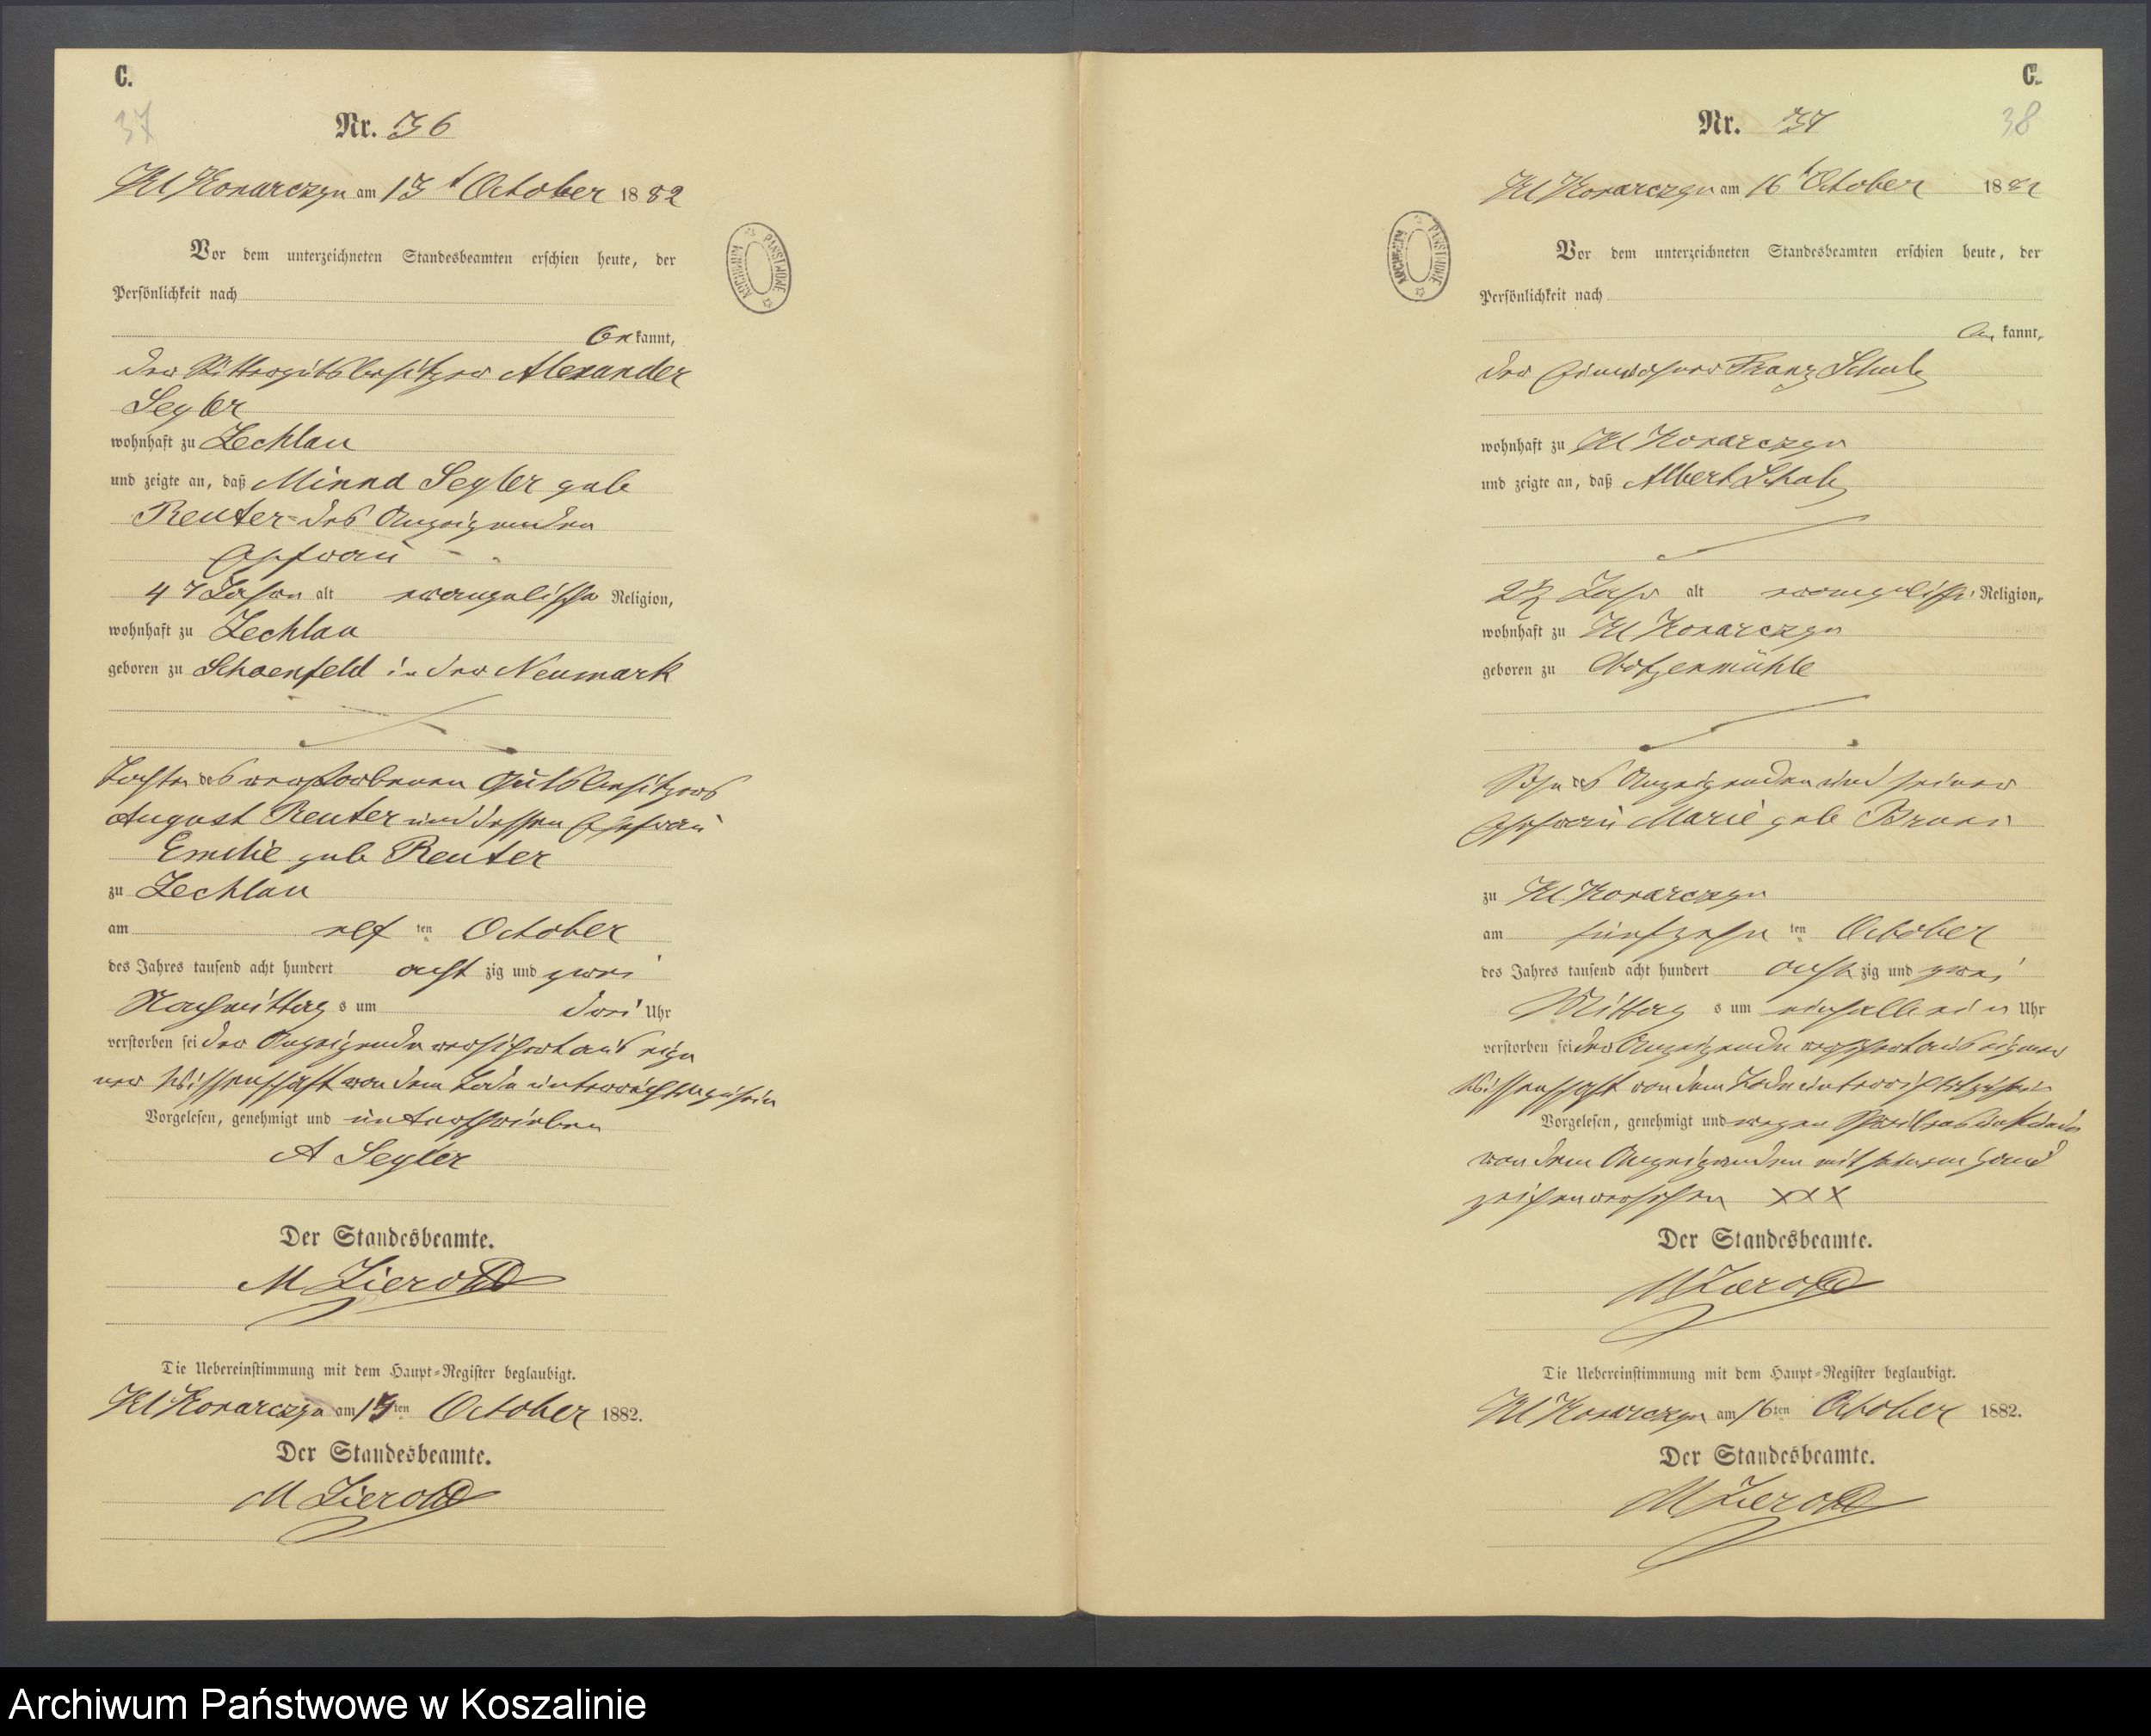 C.
37
Nr. 36
Kl Konarczyn am 13t October 1882
Vor dem unterzeichneten Standesbeamten erschien heute, der
Persönlichkeit nach
bekannt,
der Rittergutsbesitzer Alexander
Segler
wohnhaft zu Zechlau
und zeigte an, daß Minna Segler geb
Reuter des Anzeigenden
Ehefrau
47 Jahre alt evangelischer Religion,
wohnhaft zu Zechlau
geboren zu Schoenfeld in der Neumark
Tochter des verstorbenen Gutsbesitzers
August Reuter und dessen Ehefrau
Emilie geb Reuter
zu Zechlau
am elf ten October
des Jahres tausend acht hundert acht zig und zwei
Nachmittag s um drei Uhr
verstorben sei der Anzeigende versichert aus eige
ner Wissenschaft von dem Tode unterrichtet zu sein
Vorgelesen, genehmigt und unterschrieben
A Segler
Der Standesbeamte.
M Zierold
Die Uebereinstimmung mit dem Haupt-Register beglaubigt.
Kl Konarczyn am 13ten October 1882.
Der Standesbeamte.
M Zierold
C.
38
Nr. 37
Kl Konarczyn am 16t October 1882
Vor dem unterzeichneten Standesbeamten erschien heute, der
Persönlichkeit nach
be kannt,
der Einwohner Franz Schulz
wohnhaft zu Kl Konarczyn
und zeigte an, daß Albert Schulz
Jahr alt evangelischer Religion,
wohnhaft zu Kl Konarczyn
geboren zu
Sohn des Anzeigenden und seiner
Ehefrau Marie geb
zu Kl Konarczyn
am fünfzehn ten October
des Jahres tausend acht hundert acht zig und zwei
Mittag s um einhalb ein Uhr
verstorben sei der Anzeigende versichert aus eigener
Wissenschaft von dem Tode unterrichtet zu sein
Vorgelesen, genehmigt und wegen Schreibensunkunde
von dem Anzeigenden mit seinem Hand
zeichen versehen XXX
Der Standesbeamte.
M Zierold
Die Uebereinstimmung mit dem Haupt-Register beglaubigt.
Kl Konarczyn am 16ten October 1882.
Der Standesbeamte.
M Zierold
Archiwum Państwowe w Koszalinie